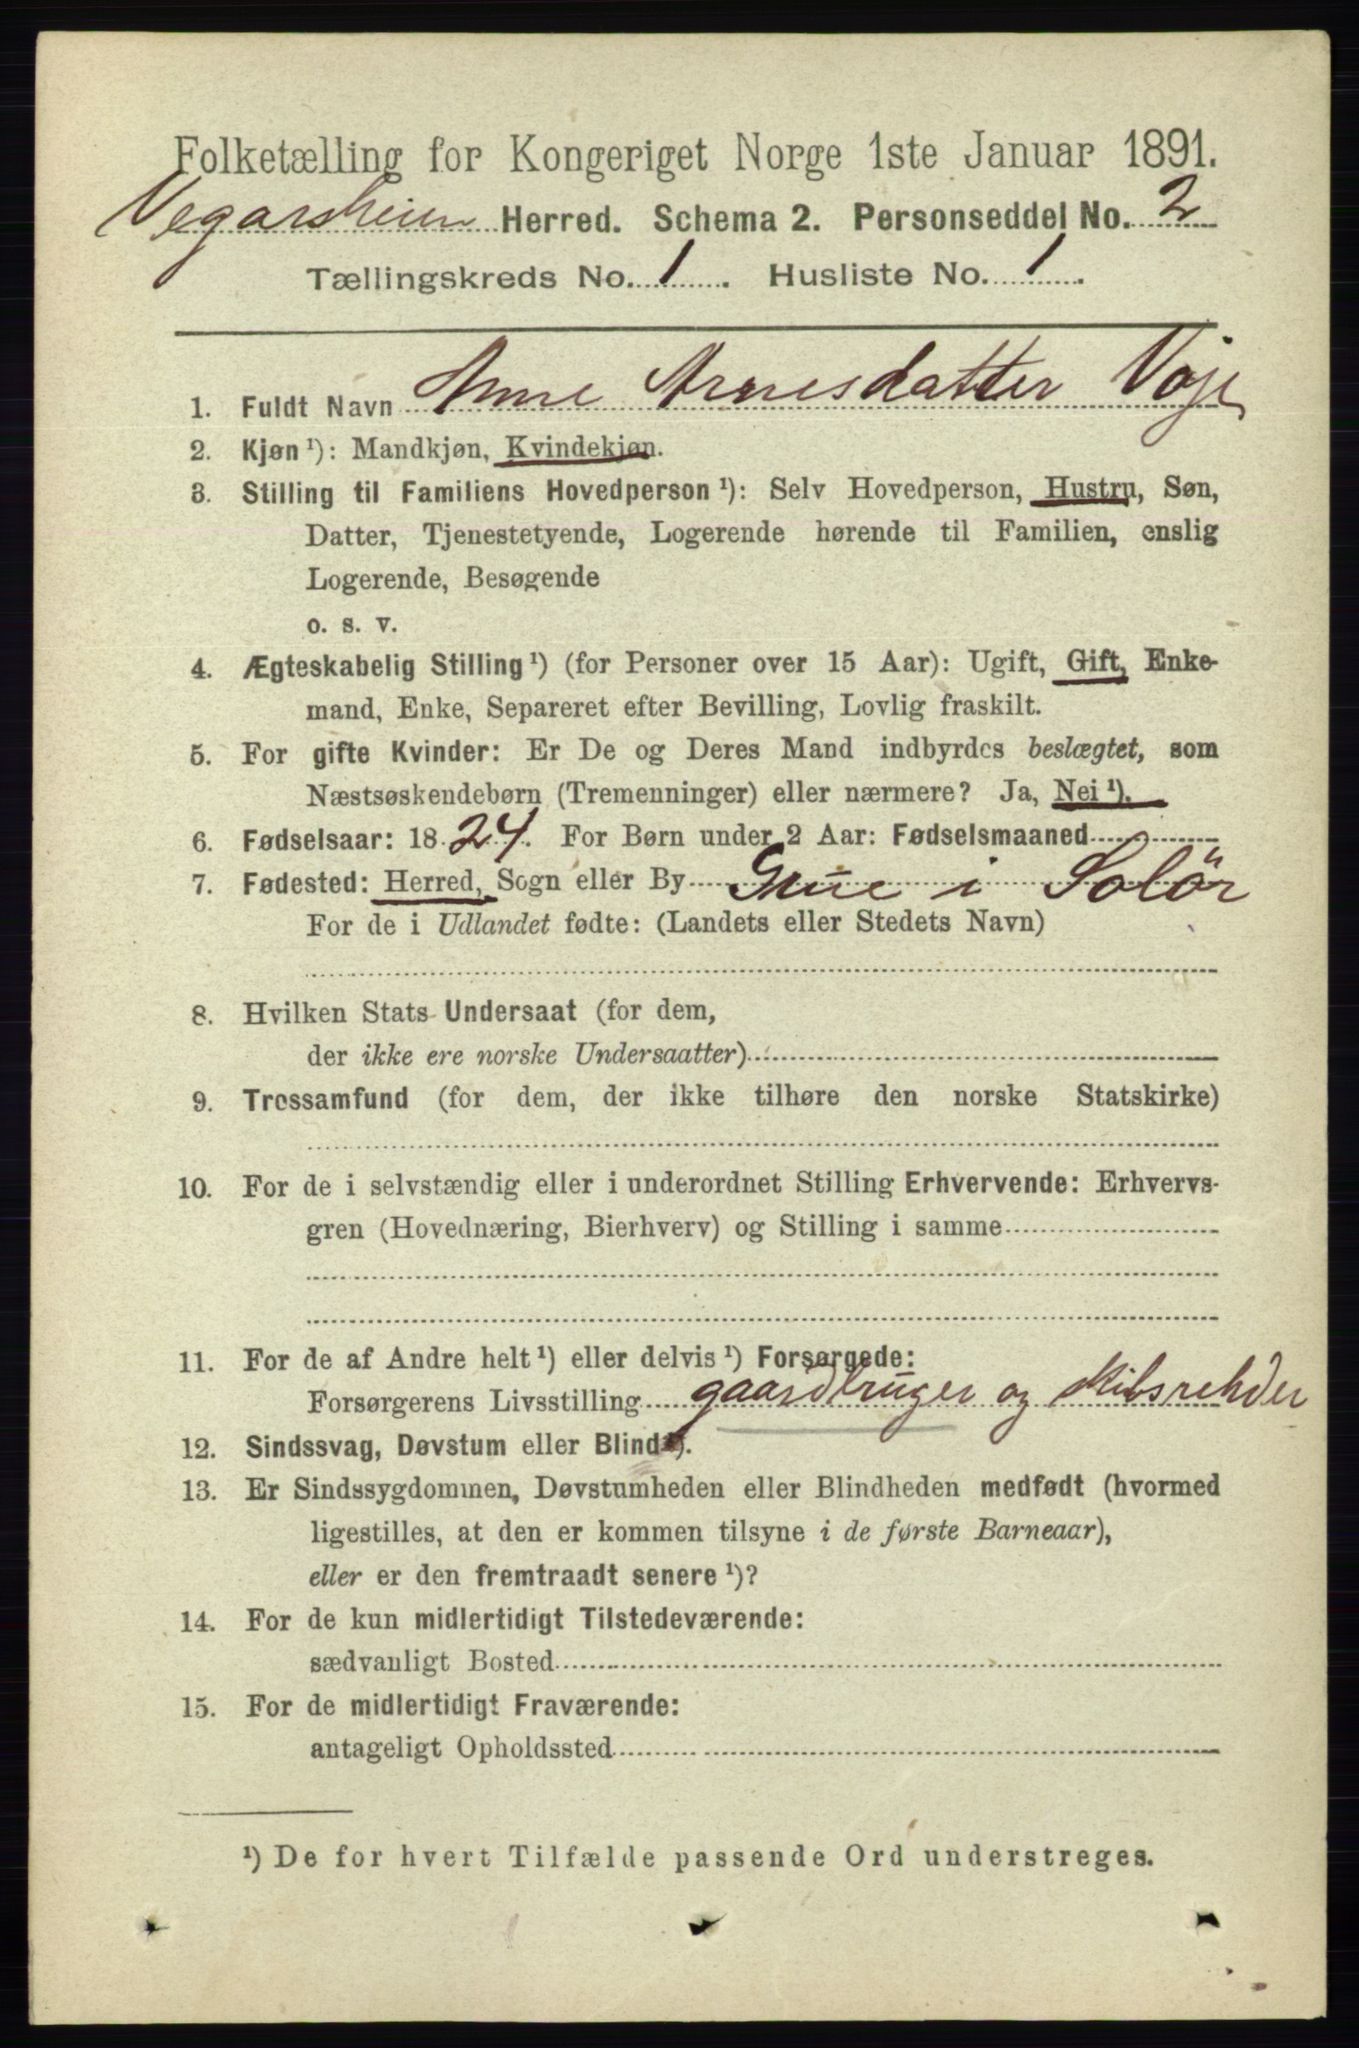 Folketælling for Kongeriget Norge 1ste Januar 1891.
Vegarsheien Herred. Schema 2. Personseddel No. 2
Tællingskreds No. 1. Husliste No. 1.
1. Fuldt Navn Anne Arnesdatter Voje
2. Kjøn ¹): Mandkjøn, Kvindekjøn.
3. Stilling til Familiens Hovedperson ¹): Selv Hovedperson, Hustru, Søn,
Datter, Tjenestetyende, Logerende hørende til Familien, enslig
Logerende, Besøgende
o. s. v.
4. Ægteskabelig Stilling ¹) (for Personer over 15 Aar): Ugift, Gift, Enke-
mand, Enke, Separeret efter Bevilling, Lovlig fraskilt.
5. For gifte Kvinder: Er De og Deres Mand indbyrdes beslægtet, som
Næstsøskendebørn (Tremenninger) eller nærmere? Ja, Nei ¹).
6. Fødselsaar: 1824. For Børn under 2 Aar: Fødselsmaaned
7. Fødested: Herred, Sogn eller By Grue i Solör
For de i Udlandet fødte: (Landets eller Stedets Navn)
8. Hvilken Stats Undersaat (for dem,
der ikke ere norske Undersaatter)
9. Trossamfund (for dem, der ikke tilhøre den norske Statskirke)
10. For de i selvstændig eller i underordnet Stilling Erhvervende: Erhvervs-
gren (Hovednæring, Bierhverv) og Stilling i samme
11. For de af Andre helt ¹) eller delvis ¹) Forsørgede:
Forsørgerens Livsstilling gaardbruger og skibsrehder
12. Sindssvag, Døvstum eller Blind ¹).
13. Er Sindssygdommen, Døvstumheden eller Blindheden medfødt (hvormed
ligestilles, at den er kommen tilsyne i de første Barneaar),
eller er den fremtraadt senere ¹)?
14. For de kun midlertidigt Tilstedeværende:
sædvanligt Bosted
15. For de midlertidigt Fraværende:
antageligt Opholdssted
¹) De for hvert Tilfælde passende Ord understreges.